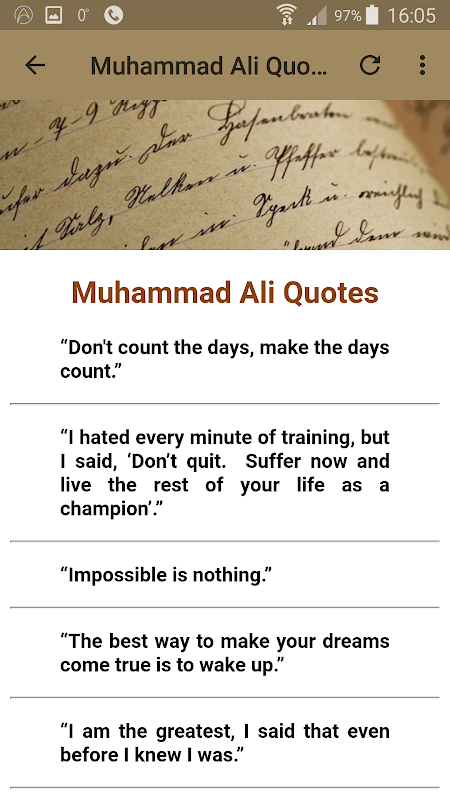 0°
97%
16:05
Muhammad Ali Quo...
7-9
dazu. Der Hasenbraten
Salz, Nelken u. Pfeffer
in. Speck u. reichlich
dem
Muhammad Ali Quotes
“Don't count the days, make the days
count.”
“I hated every minute of training, but
I said, ‘Don’t quit. Suffer now and
live the rest of your life as a
champion’.”
“Impossible is nothing.”
“The best way to make your dreams
come true is to wake up.”
“I am the greatest, I said that even
before I knew I was.”